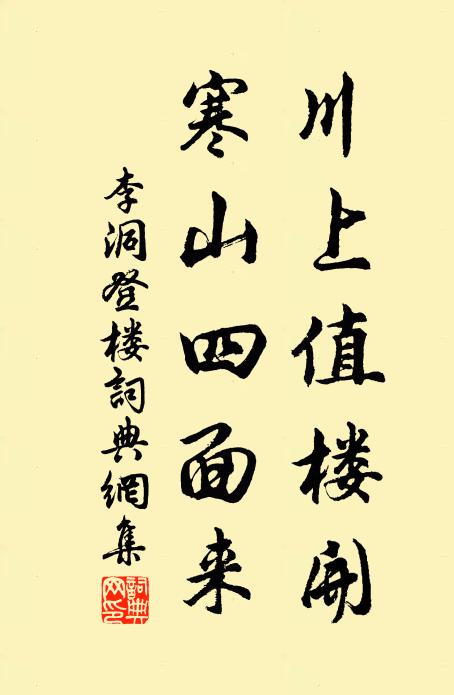 川上值楼開
寒山四面来
李洞登楼詞典網集
詞典網印